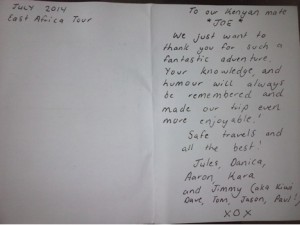 JULY 2014
East Africa Tour
To our Kenyan mate
"JOE"
We just want to
thank you for such a
fantastic adventure.
Your knowledge, and
humour will always
be remembered and
made our trip even
more enjoyable!
Safe travels and
all the best!
Jules, Danica,
Aaron, Kara
and Jimmy (aka
Dave, Tom, Jason, Paul!)
XOX